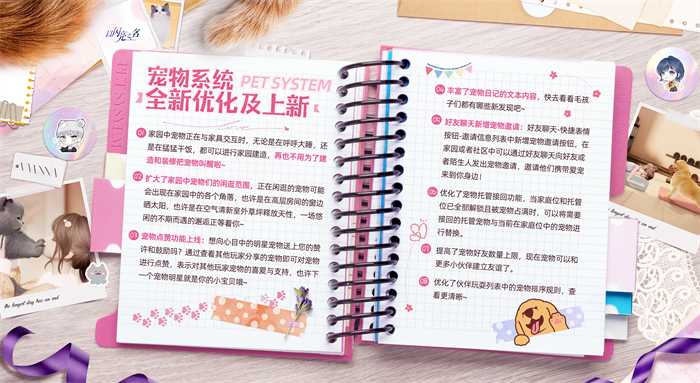 以闪亮之名
宠物系统
PET SYSTEM
全新优化及上新
01 家园中宠物正在与家具交互时，无论是在呼呼大睡，还
是在猛猛干饭，都可以进行家园建造，再也不用为了建
造和装修把宠物叫醒啦~
02 扩大了家园中宠物们的闲逛范围，正在闲逛的宠物可能
会出现在家园中的各个角落，也许是在高层房间的窗边
晒太阳，也许是在空气清新室外草坪释放天性，一场悠
闲的不期而遇的邂逅正等着你~
03 宠物点赞功能上线：想向心目中的明星宠物送上您的赞
许和鼓励吗？通过查看其他玩家分享的宠物即可对宠物
进行点赞，表示对其他玩家宠物的喜爱与支持，也许下
一个宠物明星就是你的小宝贝哦~
04 丰富了宠物日记的文本内容，快去看看毛孩
子们都有哪些新发现吧~
05 好友聊天新增宠物邀请：好友聊天-快捷表情
按钮-邀请信息列表中新增宠物邀请按钮，在
家园或者社区中可以通过好友聊天向好友或
者陌生人发出宠物邀请，邀请他们携带爱宠
来到你身边！
06 优化了宠物托管接回功能，当家庭位和托管
位已全部解锁且被宠物占满时，可以将需要
接回的托管宠物与当前在家庭位中的宠物进
行替换。
07 提高了宠物好友数量上限，现在宠物可以和
更多小伙伴建立友谊了。
08 优化了伙伴玩耍列表中的宠物排序规则，查
看更清晰~